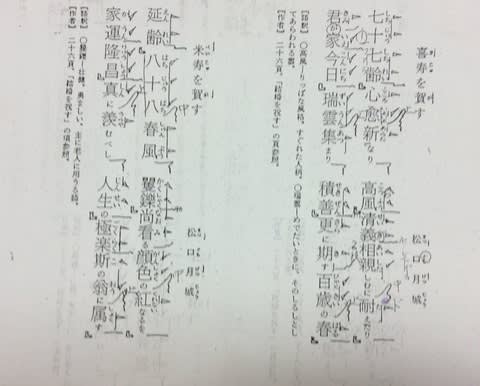 喜寿を賀す
松口月城
七十七齢心愈新なり 高風清義相親しむに耐えたり
君が家今日瑞雲集まり 積善更に期す百歳の春
【語釈】〇高風＝りっぱな風格。すぐれた人柄。〇瑞雲＝めでたいときに、そのしるしとしてあらわれる雲。
【作者】二十六頁、
の頁参照。
米寿を賀す
松口月城
延齢八十八春風 矍鑠尚看る顔色の紅なるを
家運隆昌真に羨むべし 人生の極楽斯の翁に属す
【語釈】〇矍鑠＝壮健。勇ましい。主に老人に用うる語。
【作者】二十六頁、
の項参照。